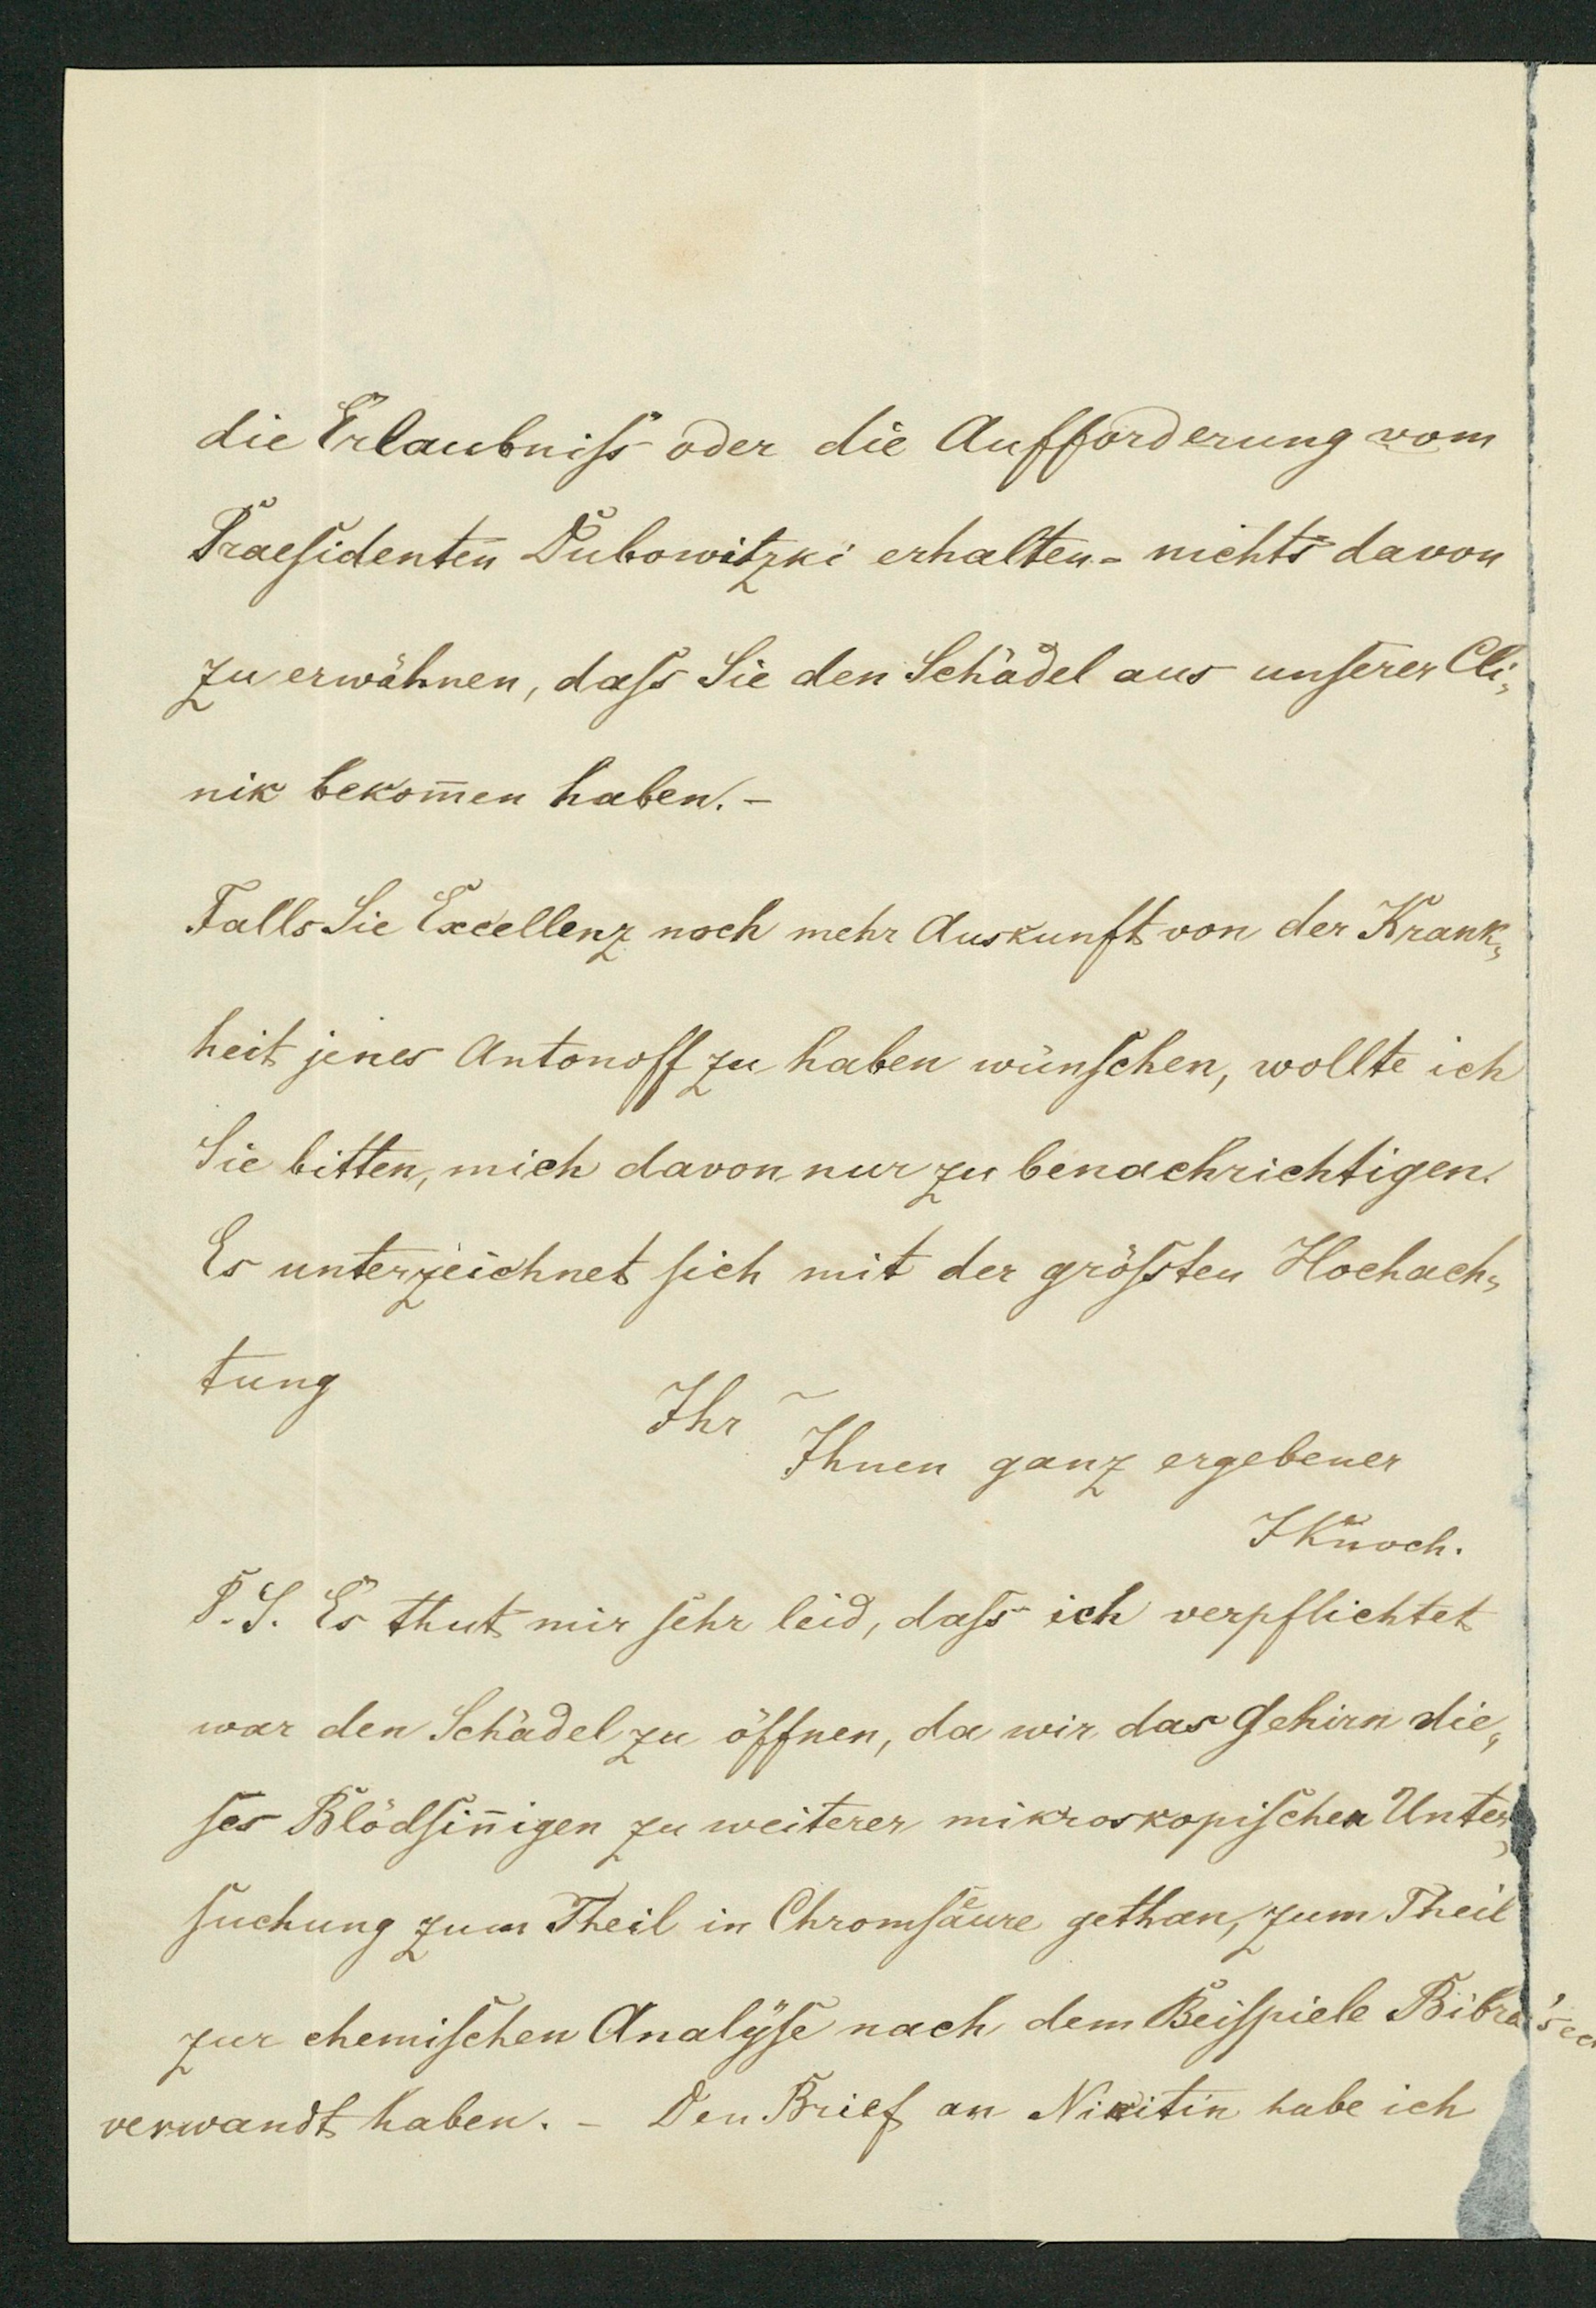 die Erlaubniſs oder die Aufforderung vom
Praeſidenten Dubowitzki erhalten – nichts davon
zu erwähnen, daſs Sie den Schädel aus unſerer Cli„
nik bekom̄en haben. –
Falls Sie Excellenz noch mehr Auskunft von der Krank„
heit jenes Antonoff zu haben wünſchen, wollte ich
Sie bitten, mich davon nur zu benachrichtigen.
Es unterzeichnet ſich mit der gröſsten Hochach„
tung
Ihr
Ihnen ganz ergebener
J Knoch.
P. S. Es thut mir ſehr leid, daſs ich verpflichtet
war den Schädel zu öffnen, da wir das Gehirn die„
ſes Blödſin̄igen zu weiterer mikroskopiſchen Unter„
ſuchung zum Theil in Chromſäure gethan, zum Theil
zur chemiſchen Analÿſe nach dem Beiſpiele Bibra's
verwandt haben. – Den Brief an Nikitin habe ich